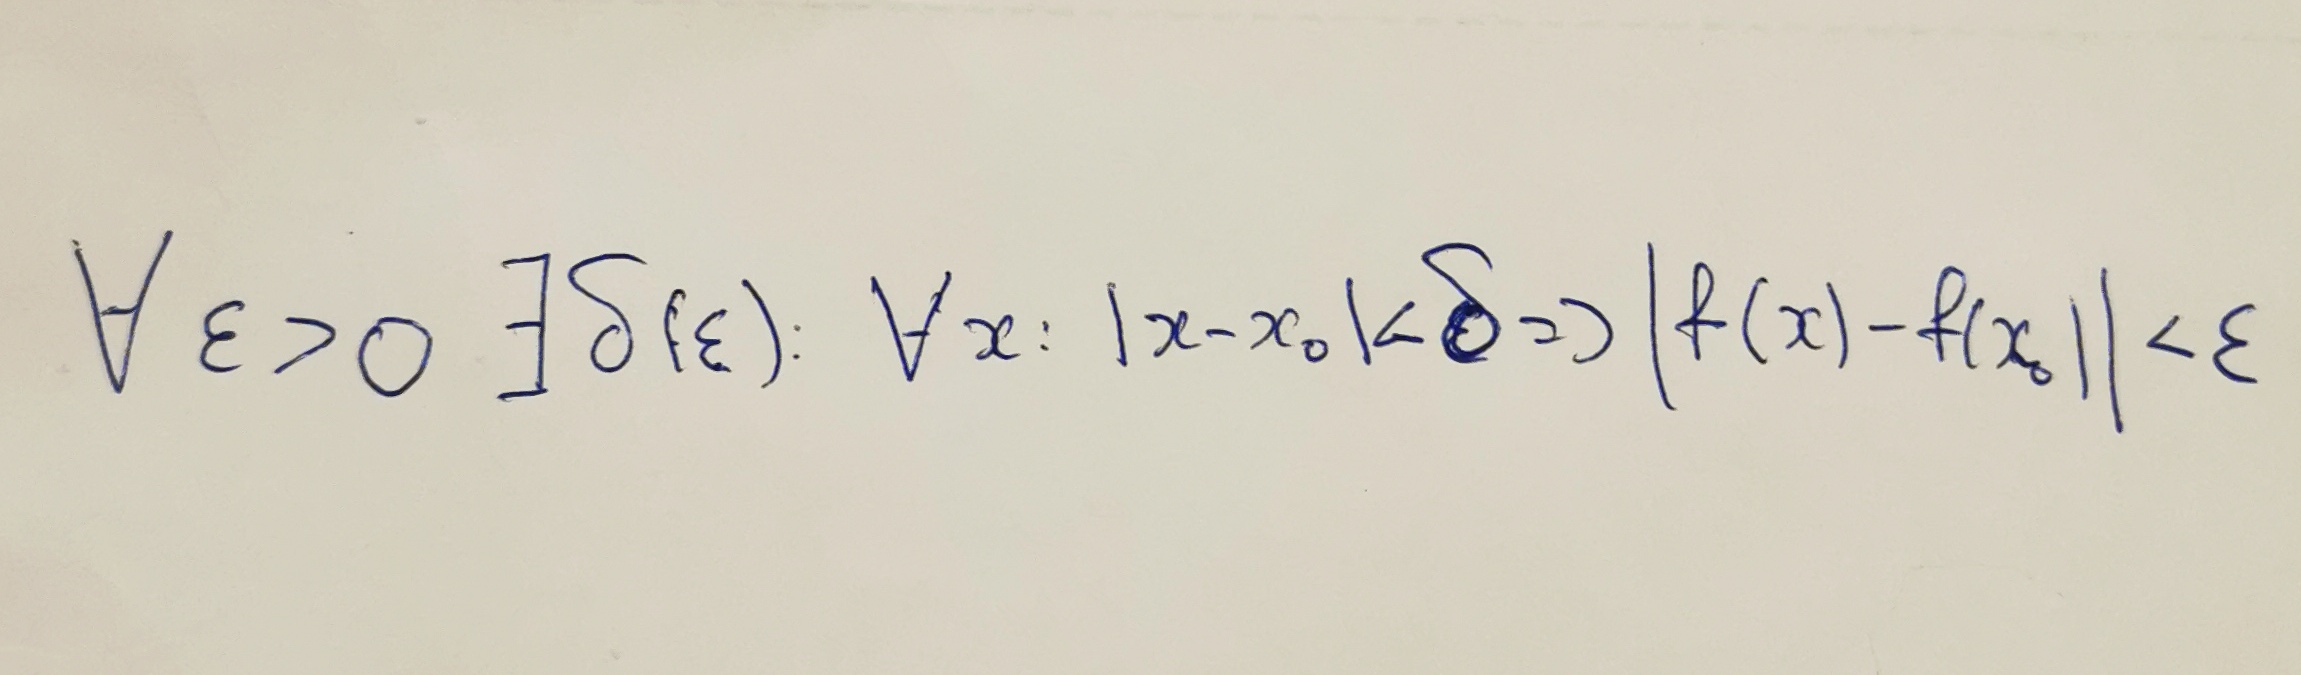 ∀ ε>0 ∃δ(ε): ∀x: |x-x₀|<δ=>|f(x)-f(x₀)|<ε